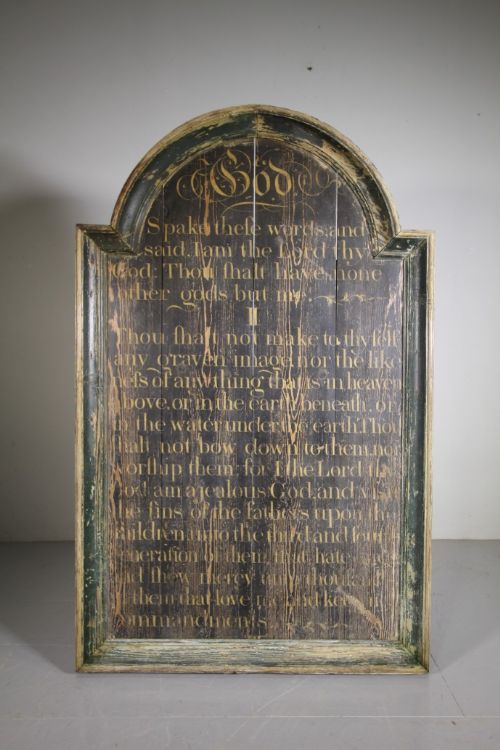 God
Spake theſe words, and
ſaid, I am the Lord thy
God: Thou ſhalt have none
other gods but me.
II
Thou ſhalt not make to thyſelf
any graven image, nor the like
neſs of any thing that is in heaven
above, or in the earth beneath, or
the water under the earth. Thou
ſhalt not bow down to them, nor
worſhip them: for I the Lord thy
God am a jealous God, and viſit
the ſins of the fathers upon the
children unto the third and fourth
generation of them that hate
and ſhew mercy unto thouſands
them that love me and keep
commandments